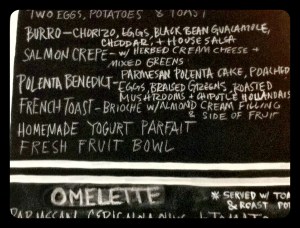 TWO EGGS, POTATOES & TOAST
BURRO - CHORIZO, EGGS, BLACK BEAN GUACAMOLE,
CHEDDAR, + HOUSE SALSA
SALMON CREPE - W/ HERBED CREAM CHEESE +
MIXED GREENS
POLENTA BENEDICT - PARMESAN POLENTA CAKE, POACHED
EGGS, BRAISED GREENS, ROASTED
MUSHROOMS + CHIPOTLE HOLLANDAIS
FRENCH TOAST - BRIOCHE W/ ALMOND CREAM FILLING
& SIDE OF FRUIT
HOMEMADE YOGURT PARFAIT
FRESH FRUIT BOWL
OMELETTE
* SERVED W/ TOA
& ROAST POT
PARMESAN TOMATO